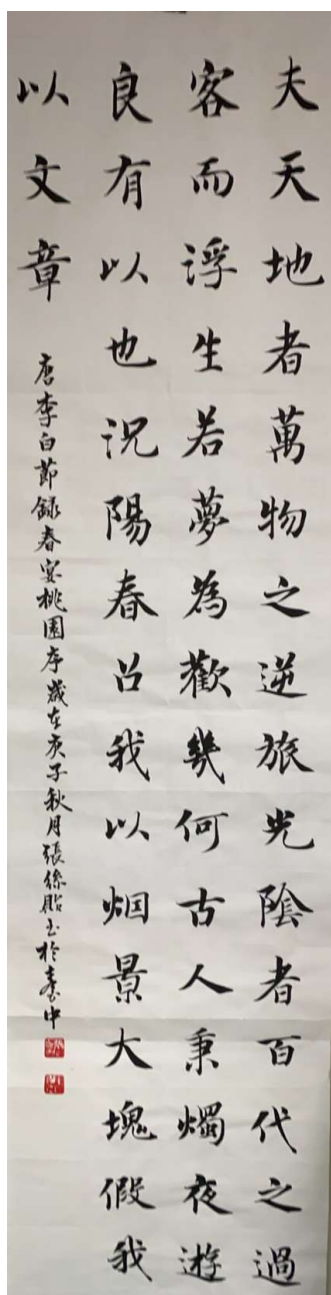 夫天地者萬物之逆旅光陰者百代之過
客而浮生若夢為歡幾何古人秉燭夜遊
良有以也況陽春召我以烟景大塊假我
以文章
唐李白節錄春宴桃園序歲在庚子秋月張絲貽玉於臺中